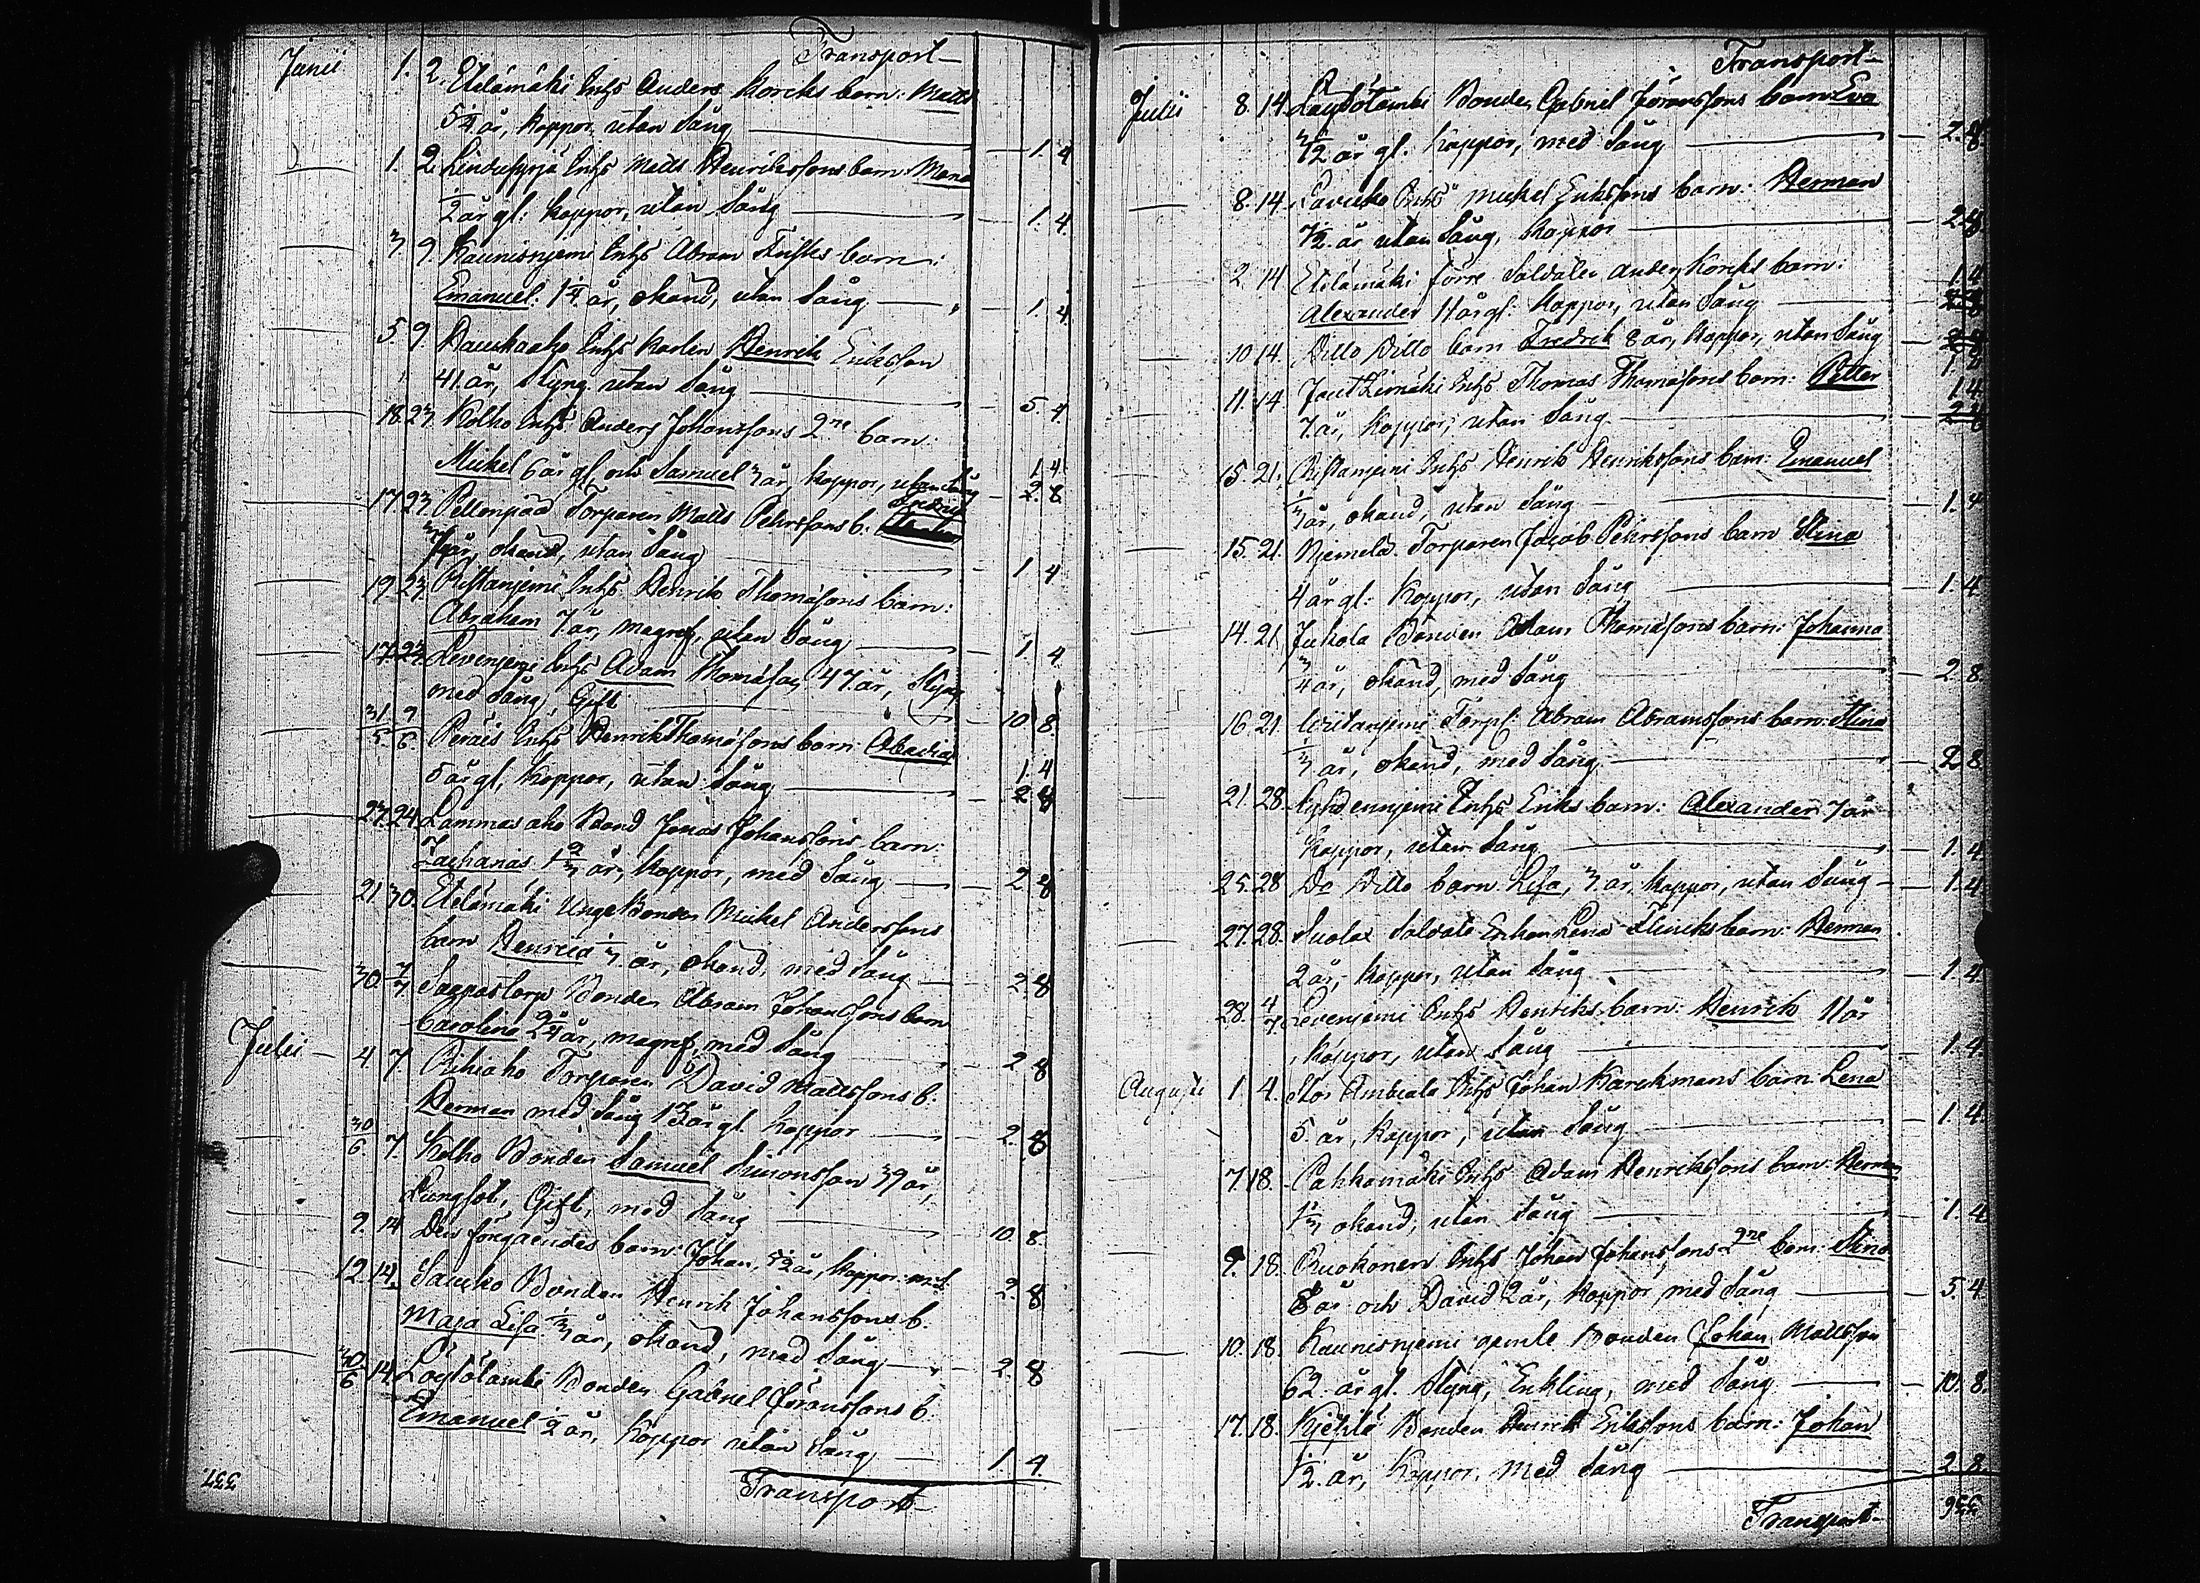 Transport
Junii 1. 2. Etelämäki Inhs Anders Korcks barn: Matts
5 1/4 år, koppor, utan Sång 1. 4
1. 2 Inhs Matts Henrikssons barn Maria
1/2 år gl: koppor, utan Sång 1. 4.
3. 9 Kaunisnjemi Inhs Abram Frisks barn:
Emanuel: 1 1/4 år, okänd, utan Sång 1. 4.
5. 9. Inhs Karlen Henrik Eriksson
41 år, Styng utan Sång 5. 4
18. 23. Kolho Inhs Anders Johanssons 2ne barn:
Mickel 6 år gl. och Samuel 3 år, koppor, utan Sång 1 4 2. 8
17. 23. Pellonpää Torparen Matts Pehrssons b. Fredrik
år, okänd, utan Sång 1 4
19. 23 Ristanjemi Inhs Henrik Thomassons barn:
Abraham 7 år, magref, utan Sång 1 4
17. 23 Levenjemi Inhs Adam Thomasson 47 år, Styng
med Sång, Gift 10 8.
31/5. 9/6. Peräis Inhs Henrik Thomassons barn Abedia
5 år gl. koppor, utan Sång 1. 4 2 8
23. 24. Lammasaho Bond Jonas Johanssons barn:
Zacharias 1 2/3 år, koppor, med Sång 2 8
21 30. Etelämäki Unge Bonden Mickel Anderssons
barn Henrica 1/3 år, okänd, med Sång 2. 8
30. 7/7 Saapastorp Bonden Abram Johanssons barn
Carolina 2 3/4 år, magref, med Sång 2 8
Julii 4. 7. Rihiaho Torparen David Mattssons b.
Herman med Sång 13 år gl. koppor 2. 8
30/6. 7. Kolho Bonden Samuel Simonsson 39 år,
Lungsot, Gift, med Sång 10 8.
9. 14 Dess föregåendes barn: Johan, 5 1/2 år, koppor. m.S. 2. 8
12. 14. Sauko Bonden Henrik Johanssons b.
Maja Lisa 1/3 år, okänd, med Sång 2. 8
30/6 14. Bonden Gabriel Jöranssons b.
Emanuel 1/2 år, koppor utan Sång 1. 4.
Transport
337.
Transport
Julii 8. 14. Bonden Gabriel Jöranssons barn Eva
år gl. koppor, med Sång 2. 8
8. 14. Inhs Mickel Erikssons barn: Herman
år utan Sång, koppor 2. 8
2. 14 Etelämäki förre Soldaten Anders Korcks barn: 1 4
Alexander 11 år gl: koppor, utan Sång
10 14. Ditto Ditto barn Fredrik 8 år, koppor, utan Sång 1. 4
11. 14 Inhs Thomas Thomassons barn: Petter 1 4
7 år, koppor, utan Sång
15. 21. Ristanjemi Inhs Henrik Henrikssons barn: Emanuel
1/3 år, okänd, utan Sång 1. 4
15. 21. Njemelä Torparen Jacob Pehrssons barn Stina
4 år gl: koppor, utan Sång 1. 4
14. 21. Jukola Bonden Adam Thomassons barn: Johanna
3/4 år, okänd, med Sång 2 8
16. 21. Torp: Abram Abramssons barn Stina
1/3 år, okänd, med Sång 2 8
21. 28. Inhs Eriks barn: Alexander 7 år
koppor, utan Sång 1. 4
25. 28 Do Ditto barn Lisa, 3 år, koppor, utan Sång 1. 4
27. 28. Suolax Soldats Enkan Lena Flincks barn: Herman
2 år, koppor, utan Sång 1. 4
28. 4/7 Levenjemi Inhs Henriks barn: Henrik 11 år
, koppor, utan Sång 1. 4.
Augusti 1. 4. Stor Ambiala Inhs Johan Karckmans barn Lena
5 år, koppor, utan Sång 1. 4.
7 18. Pahkamäki Inhs Adam Henrikssons barn: Herman
1 1/3 okänd, utan Sång 1. 4
9. 18. Ruokonen Inhs Johan Johanssons 2ne barn: Stina
8 år och David 2 år, koppor med Sång 5. 4
10. 18. Kaunisnjemi gamle Bonden Johan Mattsson
62 år gl. Styng, Enkling, med Sång 10. 8.
17. 18. Bonden Henrik Erikssons barn: Johan
1/2 år, koppor, med Sång 2. 8.
Transport
336